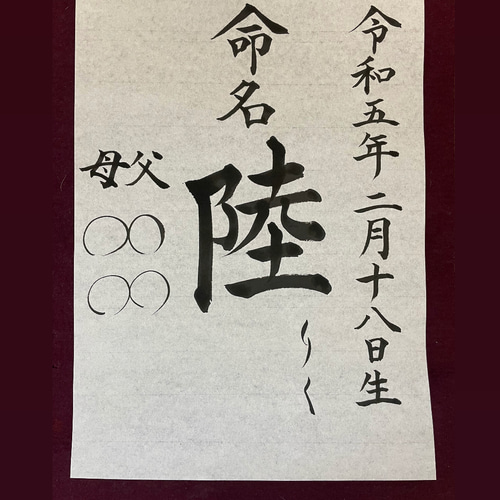 令和五年二月十八日生
命名
陸
りく
父
〇〇
〇〇
母
〇〇
〇〇